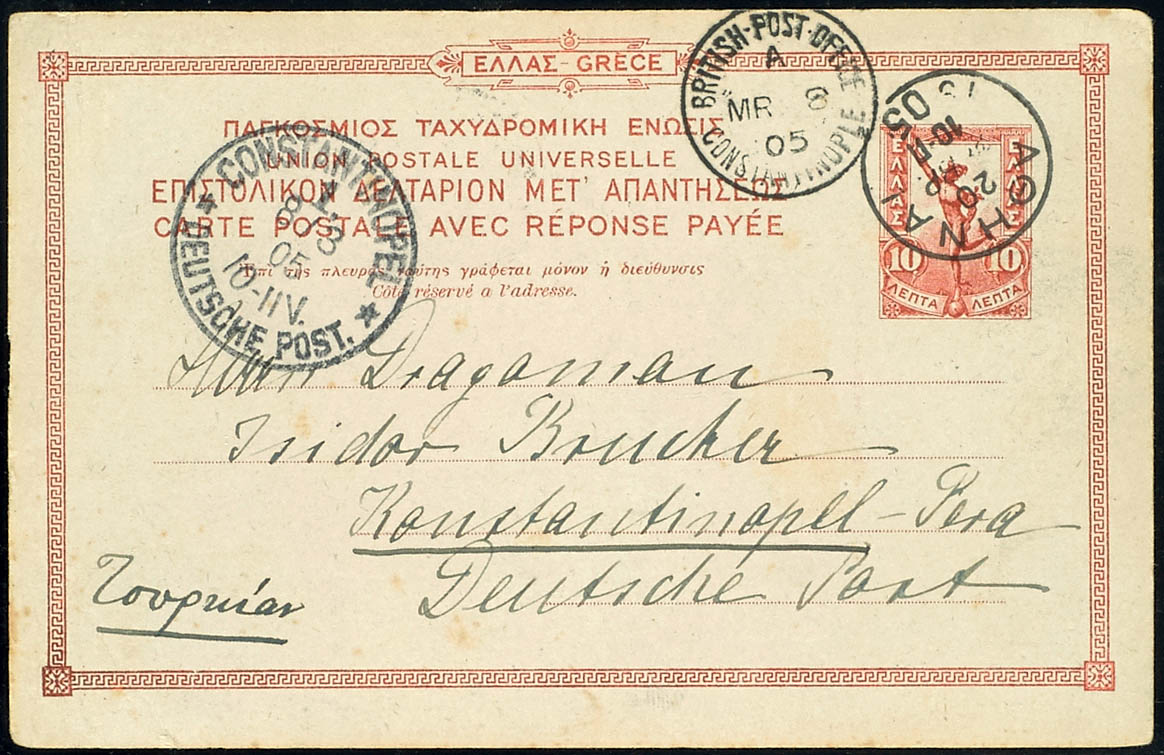 ΕΛΛΑΣ-GRECE
ΠΑΓΚΟΣΜΙΟΣ ΤΑΧΥΔΡΟΜΙΚΗ ΕΝΩΣΙΣ
UNION POSTALE UNIVERSELLE
ΕΠΙΣΤΟΛΙΚΟΝ ΔΕΛΤΑΡΙΟΝ ΜΕΤ' ΑΠΑΝΤΗΣΕΩΣ
CARTE POSTALE AVEC RÉPONSE PAYÉE
Ἐπὶ τῆς πλευρᾶς ταύτης γράφεται μόνον ἡ διεύθυνσις
Côté réservé a l'adresse.
BRITISH-POST-OFFICE
A
MR 8
05
CONSTANTINOPLE
ΑΘΗΝΑΙ
ΕΛΛΑΣ
ΕΛΛΑΣ
10 10
ΛΕΠΤΑ ΛΕΠΤΑ
CONSTANTINOPEL
8 3
05
10-11V.
* DEUTSCHE POST. *
Herrn Dragoman
Isidor Brucker
Konstantinopel-Pera
Deutsche Post
Τουρκίαν